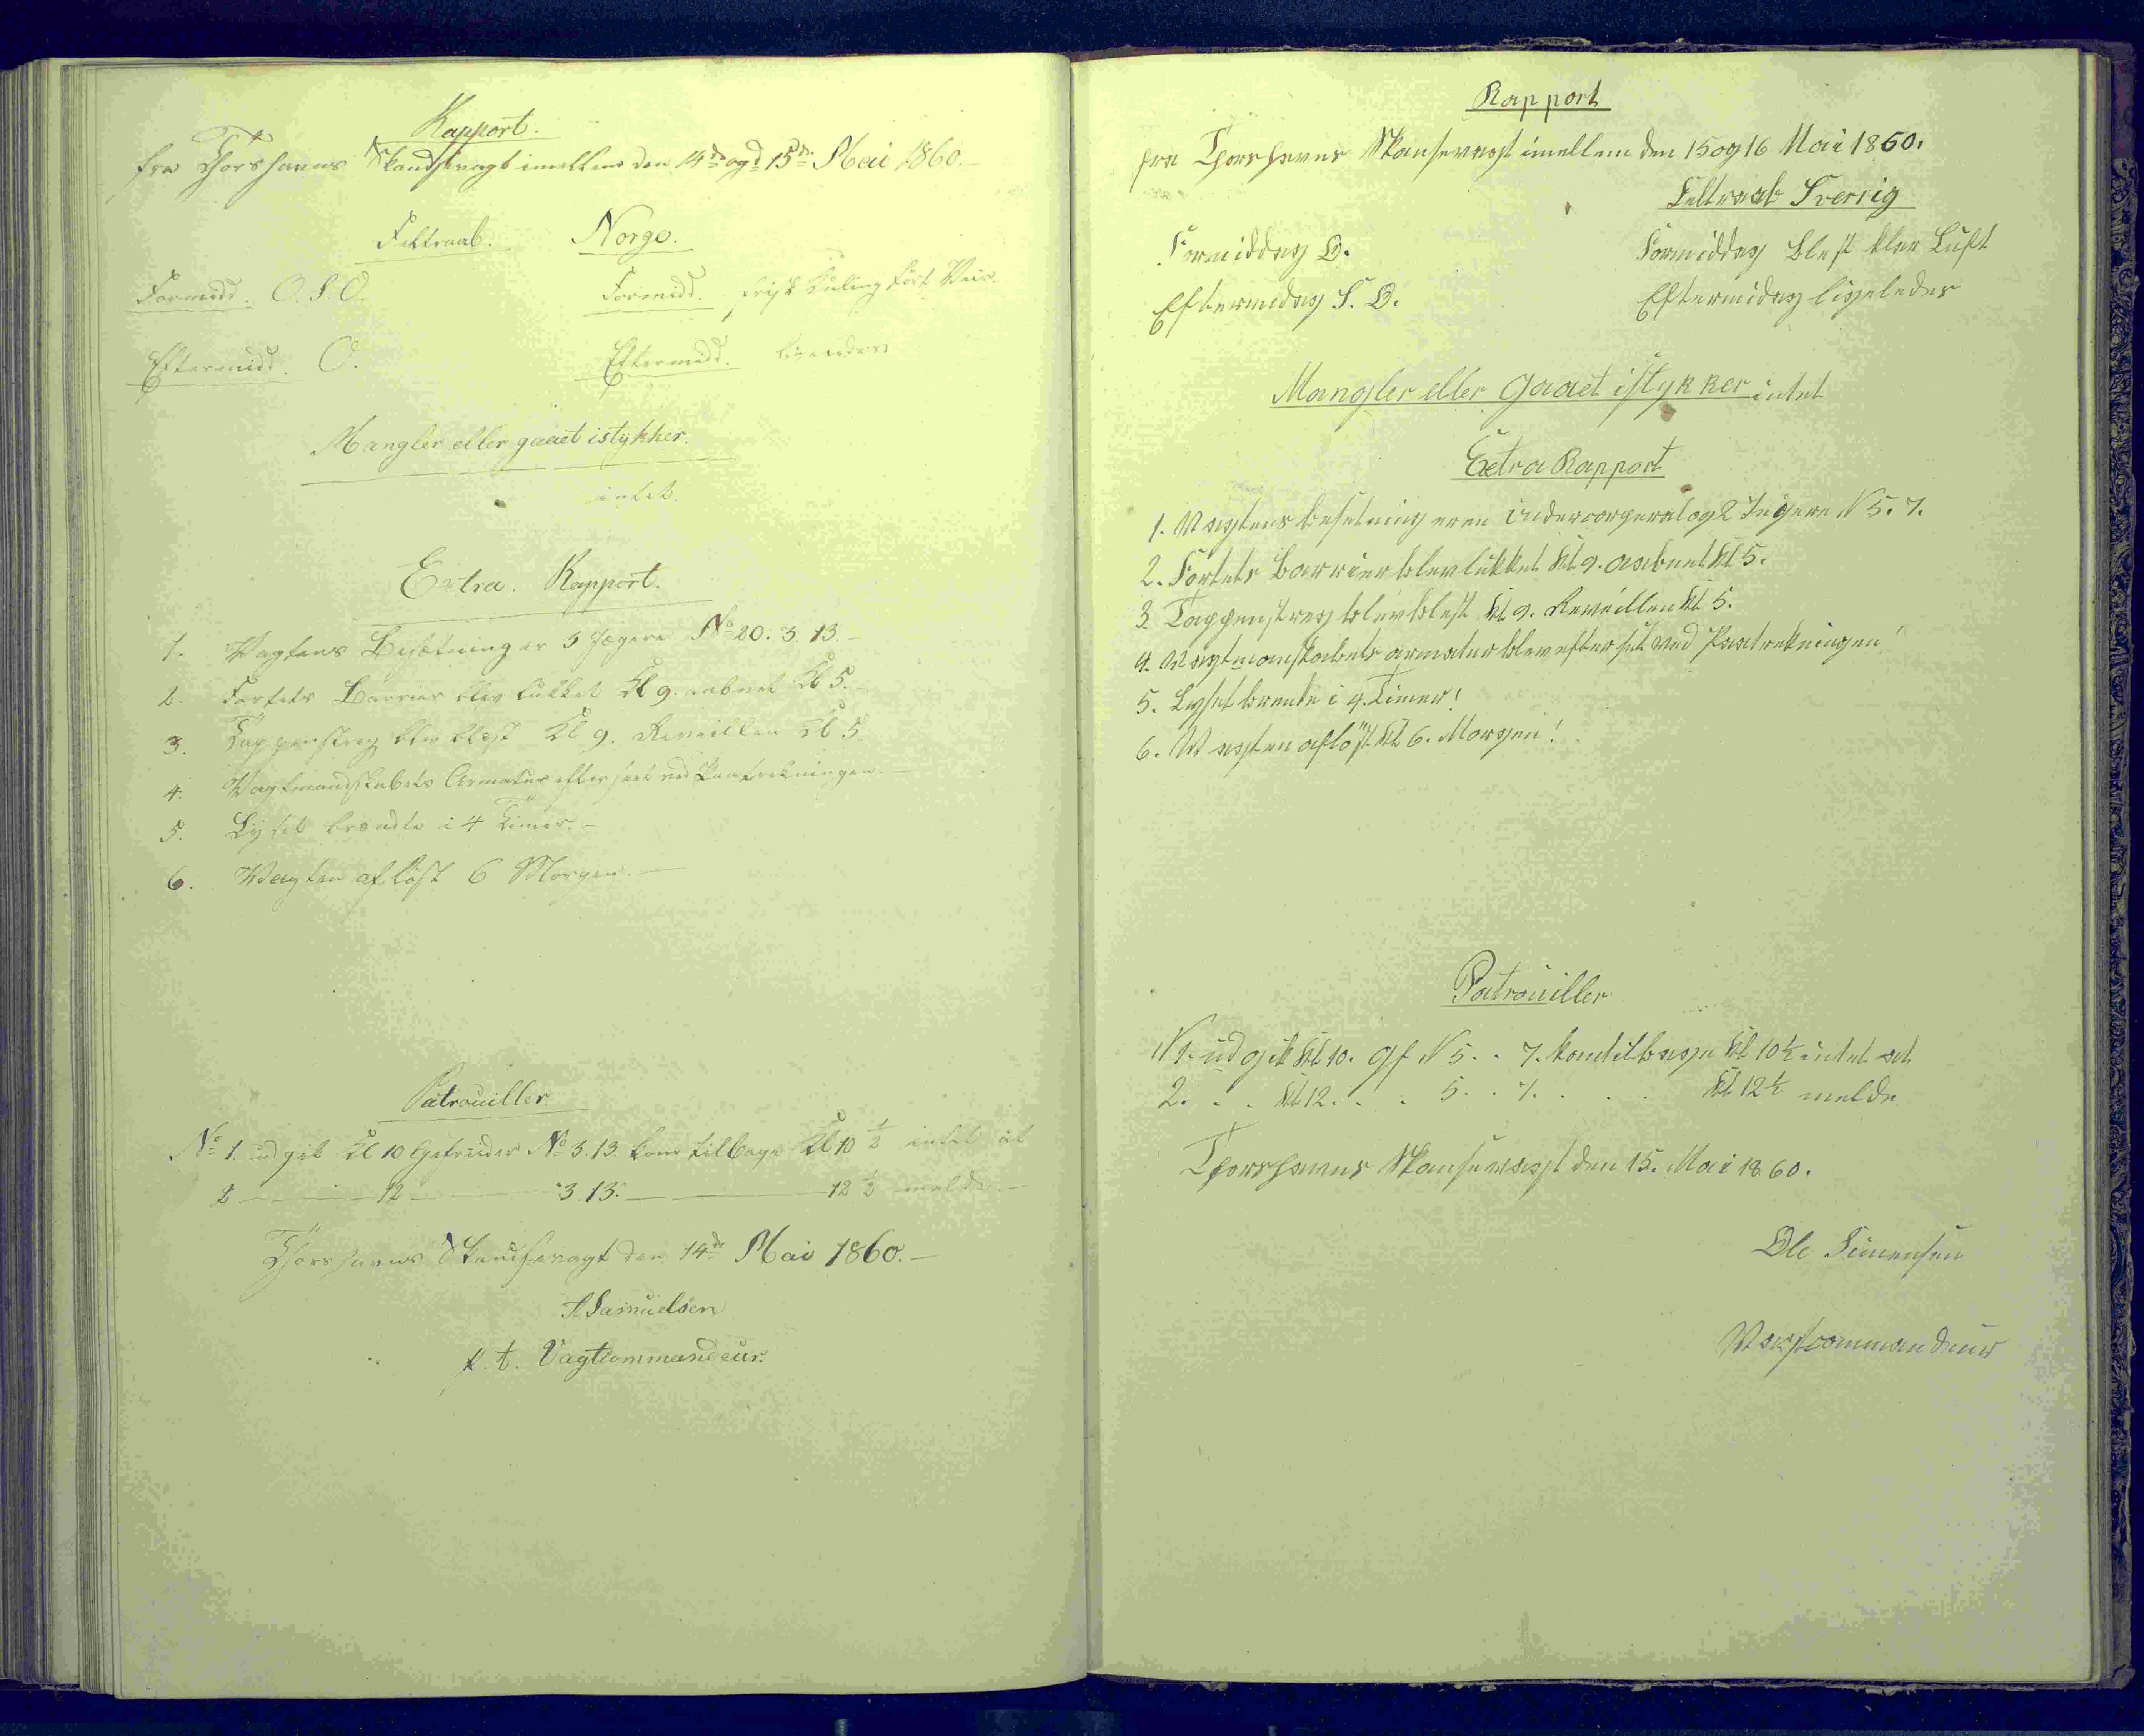 Rapport.
fra Thorshavns Skandsevagt imellem den 14de og d 15de Mai 1860.
Feltraab. Norge.
Formidd. O. S. O. Formidd. frisk Kuling tört Veir.
Eftermidd. O. Eftermidd. ligeledes
Mangler eller gaaet istykker.
intet.
Extra. Rapport.
1. Vagtens Besætning er 3 Jægere No 20. 3. 13.
2. Fortets Barrier blev lukket Kl 9. aabnet Kl 5.
3. Tappenstreg blev blæst Kl 9. Reveillen Kl 5.
4. Vagtmandskabets Armatur efterseet ved Paatrekningen.
5. Lyset brændte i 4 Timer.
6. Vagten aflöst 6 Morgen.
Patrouiller
No 1. udgik Kl 10 Gefreider No 3. 13. kom tilbage Kl 10 1/2 intet at
2 — 12 — 3. 13. — 12 1/2 melde —
Thorshavns Skandsevagt den 14de Mai 1860.
Samuelsen
p. t. Vagtcommandeur.
Rapport
fra Thorshavns Skansevagt imellem den 15 og 16 Mai 1860.
Feltraab Sverrig
Formiddag O. Formiddag blest klar Luft
Eftermidag S. O. Eftermidag ligeledes
Mangler eller gaaet istykker intet
Extra Rapport
1. Vagtens besetning er en Undercorperal og 2 Jegere N 5. 7.
2. Fortets Barrier blev lukket Kl 9. aabnet Kl 5.
3. Tappenstreg blev blest Kl 9. Reveillen Kl 5.
4. Vagtmanskabets armatur blev efterset ved Paatrekningen!
5. Lyset brente i 4. Timer!
6. Vagten aflöst Kl 6. Morgen!
Patrouiller
N 1. udgik Kl 10. Gf N 5. . 7. kom tilbage Kl 10 1/2 intet at
2. . . Kl 12. . . 5. . 7. . . . Kl 12 1/2 melde
Thorshavns Skansevagt den 15. Mai 1860.
Ole Simensen
Vagtcommandeur